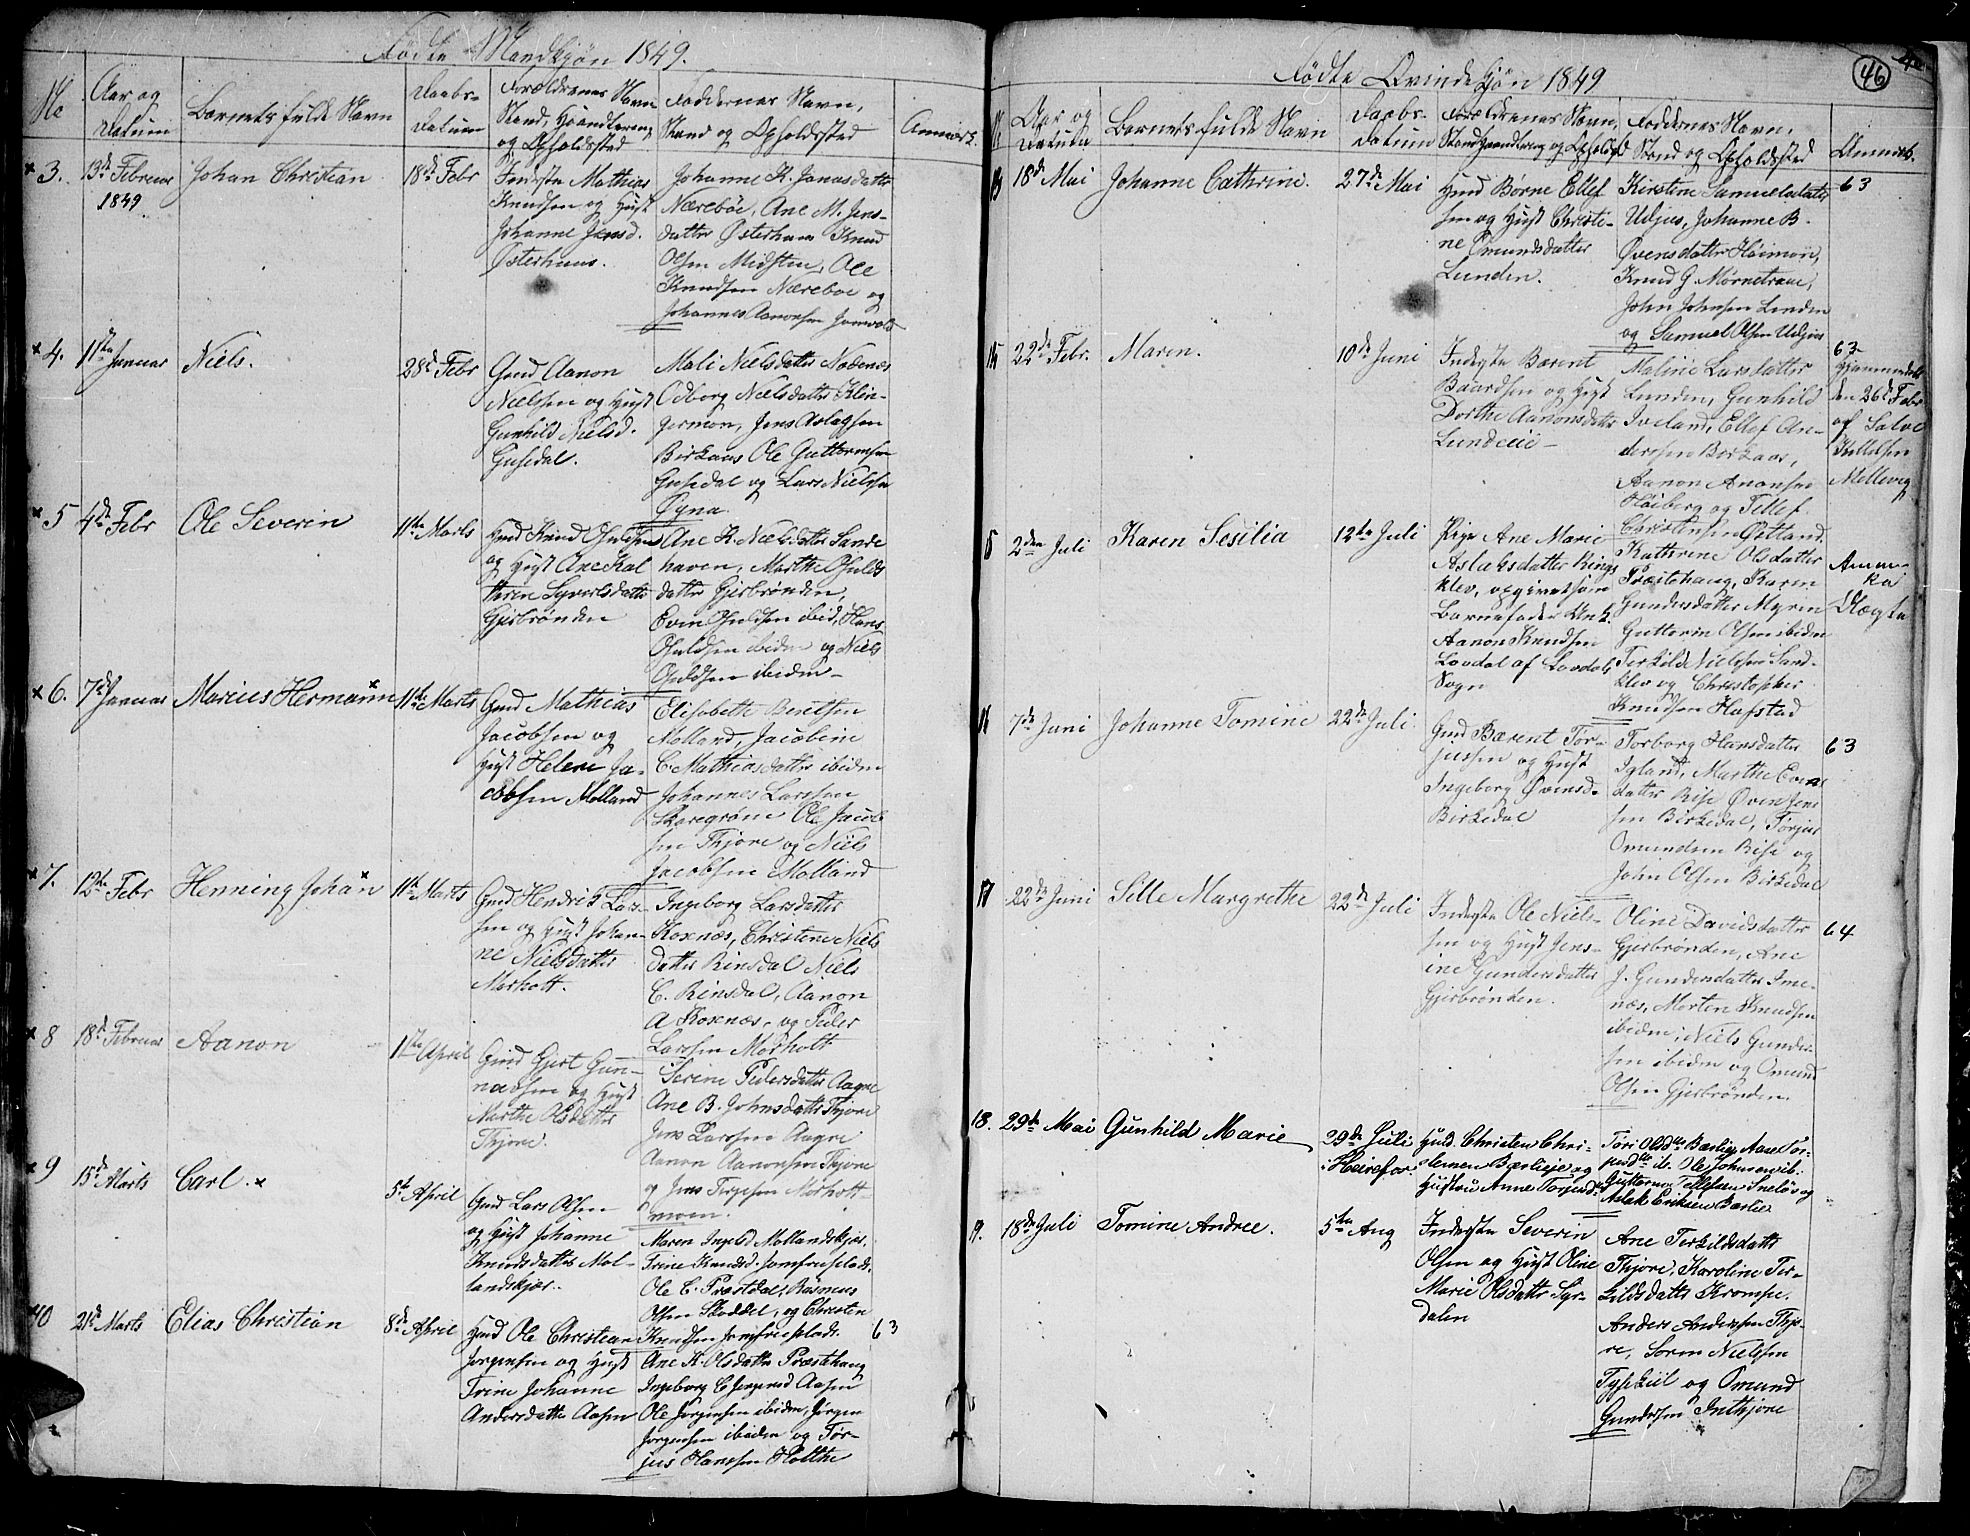 Fødte Mandkjøn 1849.
No
Aar og
Datum
Barnets fulde Navn
Daabs-
Datum
Forældrenes Navn
Stand, Haandtering
og Opholdssted
Faddernes Navn,
Stand og Opholdssted
Anmærk.
3. 13de Februar
1849
Johan Christian
18de Febr
Inderste Mathias
Knudsen og Hust
Johanne Jensd.
Østerhuus.
Johanne K. Jonasdatter
Nærebøe, Ane M. Jens-
datter Østerhuus Knud
Olsen Midsten, Ole
Knudsen Nærebøe og
Johannes Aanonsen
4. 11te Januar
Niels.
28de Febr
Gmd Aanon
Nielssen og Hust
Gunhild Nielsd.
Gusedal.
Mali Nielsdatter
Odborg Nielsdatter Klin-
germon, Jens Aslagsen
Birkaas Ole Guttormsen
Gusedal og Lars Nielssen
Øyna.
5 4de Febr
Ole Severin
11te Marts
Hmd Knud
og Hust Ane Kat
harine Syvertsdatter
Gjerbrønden
Ane K. Nielsdatter Sande
haven, Marthe
datter Gjerbrønden,
Even ibid, Hans
ibidm og Niels
ibidm
6. 7de Januar
Marius Hermann
11te Marts
Gmd Mathias
Jacobsen og
Hust Helene Ja-
cobsen Molland
Elisabeth Berntsen
Molland, Jacobine
C. Mathiasdatter ibidm
Johannes Larssen
Skaregrøm Ole Jacob
sen Thjore og Niels
Jacobsen Molland
7. 12te Febr
Henning Johan
11te Marts
Gmd Hendrik Lars-
sen og Hust Johan-
ne Nielsdatter
Morholt.
Ingeborg Larsdatter
Kosenæs, Christine Niels
datter Rinsdal Niels
C. Rinsdal, Aanon
A Kosenæs, og Peder
Larssen Morholt
8 18de Februar
Aanon
1ste April
Gmd Gjert Gun-
narsen og Hust
Marthe Olsdatter
Thjore.
Serine Pedersdatter Aagre
Ane B. Johnsdatter Thjore
Jens Larssen Aagre
Aanon Aanonsen Thjore
og Jens Terjesen Morholt-
moen
9 15de Marts
Carl.
5te April
Gmd Lars Olsen
og Hust Johanne
Knudsdatter Mol-
landskjær.
Maren Ingebd Mollandskjær.
Trine Knudsd. Jomfrueplads.
Ole C. Præstdal, Rasmus
Olsen Skoddel, og Christen
Knudsen Jomfrueplads.
10 21de Marts
Elias Christian
8de April
Hmd Ole Christian
Jørgensen og Hust
Trine Johanne
Andersdatter Aasen
Ane K. Olsdatter Præstehaug
Ingeborg C Jørgensd Aasen
Ole Jørgensen ibidm, Jørgen
Jørgensen ibidm og Tør-
jus Hanssen Holthe
63
46
Fødte Qvindekjøn 1849
Aar og
Datum
Barnets fulde Navn
Daabs-
Datum
Forældrenes Navn,
Stand Haandtering og Opholdsst
Faddernes Navn,
Stand og Opholdssted
Anmærk.
13 18de Mai
Johanne Cathrine.
27de Mai
Hmd Børne Ellef
sen og Hust Christi-
ne Omundsdatter
Lunden.
Kirstine Samuelsdatter
Udjus, Johanne B.
Øvensdatter Heimon,
Knud G. Mørnetraae,
John Johnsen Lunden
og Samuel Olsen Udjus
63
14 22de Febr.
Maren.
10de Juni
Inderste Bærent
Baardsen og Hust
Dorthe Aanonsdatter
Lundeie
Maline Larsdatter
Lunden, Gunhild
Iveland, Ellef An-
dersen Birkaas,
Aanon Ananson
Høiberg og Tellef
Christensen Østland.
63
Hjemmedøbt
den 26de Febr
af Salve
Kittelsen
Mellevig
15 2den Juli
Karen Sesilia
12te Juli
Pige Ane Marie
Aslaksdatter Rings
klev, opgivet som
Barnefader Unk.
Aanon Knudsen
Lovdal af Lovdals
Sogn
Kathrine Olsdatter
Præstehaug, Karen
Gundersdatter Myren
Guttorm Olsen ibidm
Terkild Nielssen Sand-
klev og Christopher
Knudsen Hafstad
Slægte
16 7de Juni
Johanne Tomine
22de Juli
Gmd Bærent Tor-
jussen og Hust
Ingeborg Øvensd.
Birkedal
Torborg Hansdatter
Igland, Marthe Evens
datter Rise Øven Jens
sen Birkedal, Torjus
Omundsen Rise og
John Olsen Birkedal
63
17 22de Juni
Sille Margrethe
22de Juli
Inderste Ole Niels-
sen og Hust Jens-
ine Gundersdatter
Gjerbrønden.
Oline Davidsdatter
Gjerbrønden, Ane
J. Gundersdatter Ime-
næs, Morten Knudsen
ibidm, Niels Gunder-
sen ibidm og Omund
Olsen Gjerbrønden.
64
18. 29de Mai
Gunhild Marie
29de Juli
i Heirefos.
Huusmd. Christen Chri-
stensen Bærlieje og
Hustru Anne Torjusd
Tori Olsdtr Bærlieje Aase Tor-
jusdtr ib. Ole Johnsen ib.
Guttorm Tellefsen Sneløs og
Aslak Eriksen Bærlie.
19. 18de Juli
Tomine Andree.
5te Aug
Inderste Severin
Olsen og Hust Oline
Marie Olsdatter Syr-
dalen
Ane Terkildsdatter
Thjore, Karoline Ter-
kildsdatter Krompe.
Anders Andersen Thjo-
re, Søren Nielsen
Tyskiil og Omund
Gundersen Inthjore